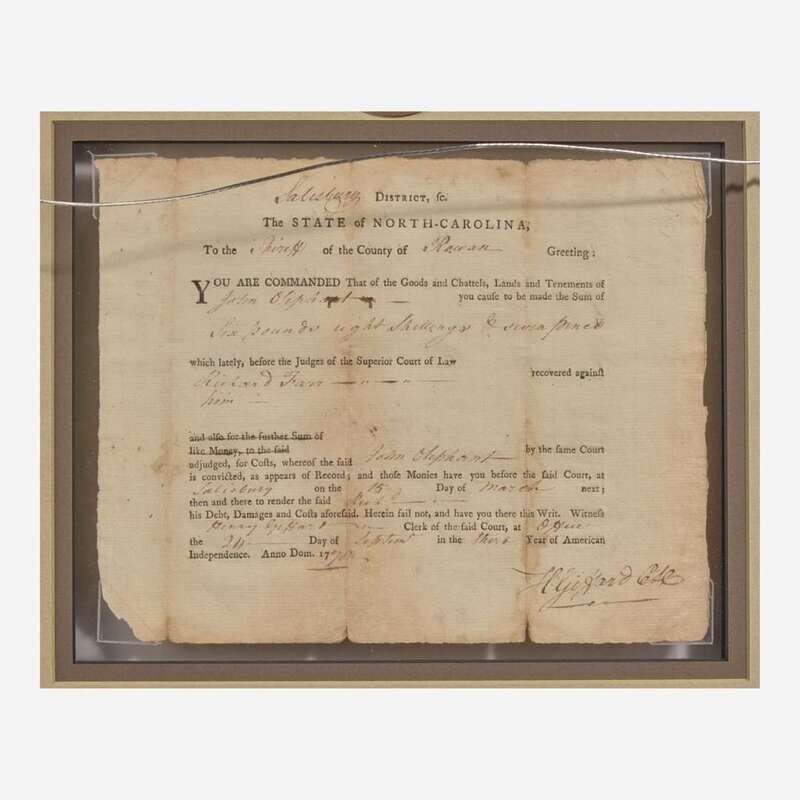 Salisbury DISTRICT, sc.
The STATE of NORTH-CAROLINA,
To the Sheriff of the County of Rowan Greeting:
YOU ARE COMMANDED That of the Goods and Chattels, Lands and Tenements of
John Olephant you cause to be made the Sum of
Six pounds eight Shillings & seven pence
which lately, before the Judges of the Superior Court of Law
Richard Farr — " — " — recovered against
him —
and also for the further Sum of
like Money, to the said John Olephant by the same Court
adjudged, for Costs, whereof the said
is convicted, as appears of Record; and those Monies have you before the said Court, at
Salisbury on the 15 Day of March next;
then and there to render the said
his Debt, Damages and Costs aforesaid. Herein fail not, and have you there this Writ. Witness
Henry Giffard Clerk of the said Court, at Office
the 24 Day of Septem in the third Year of American
Independence. Anno Dom. 1778
H Giffard